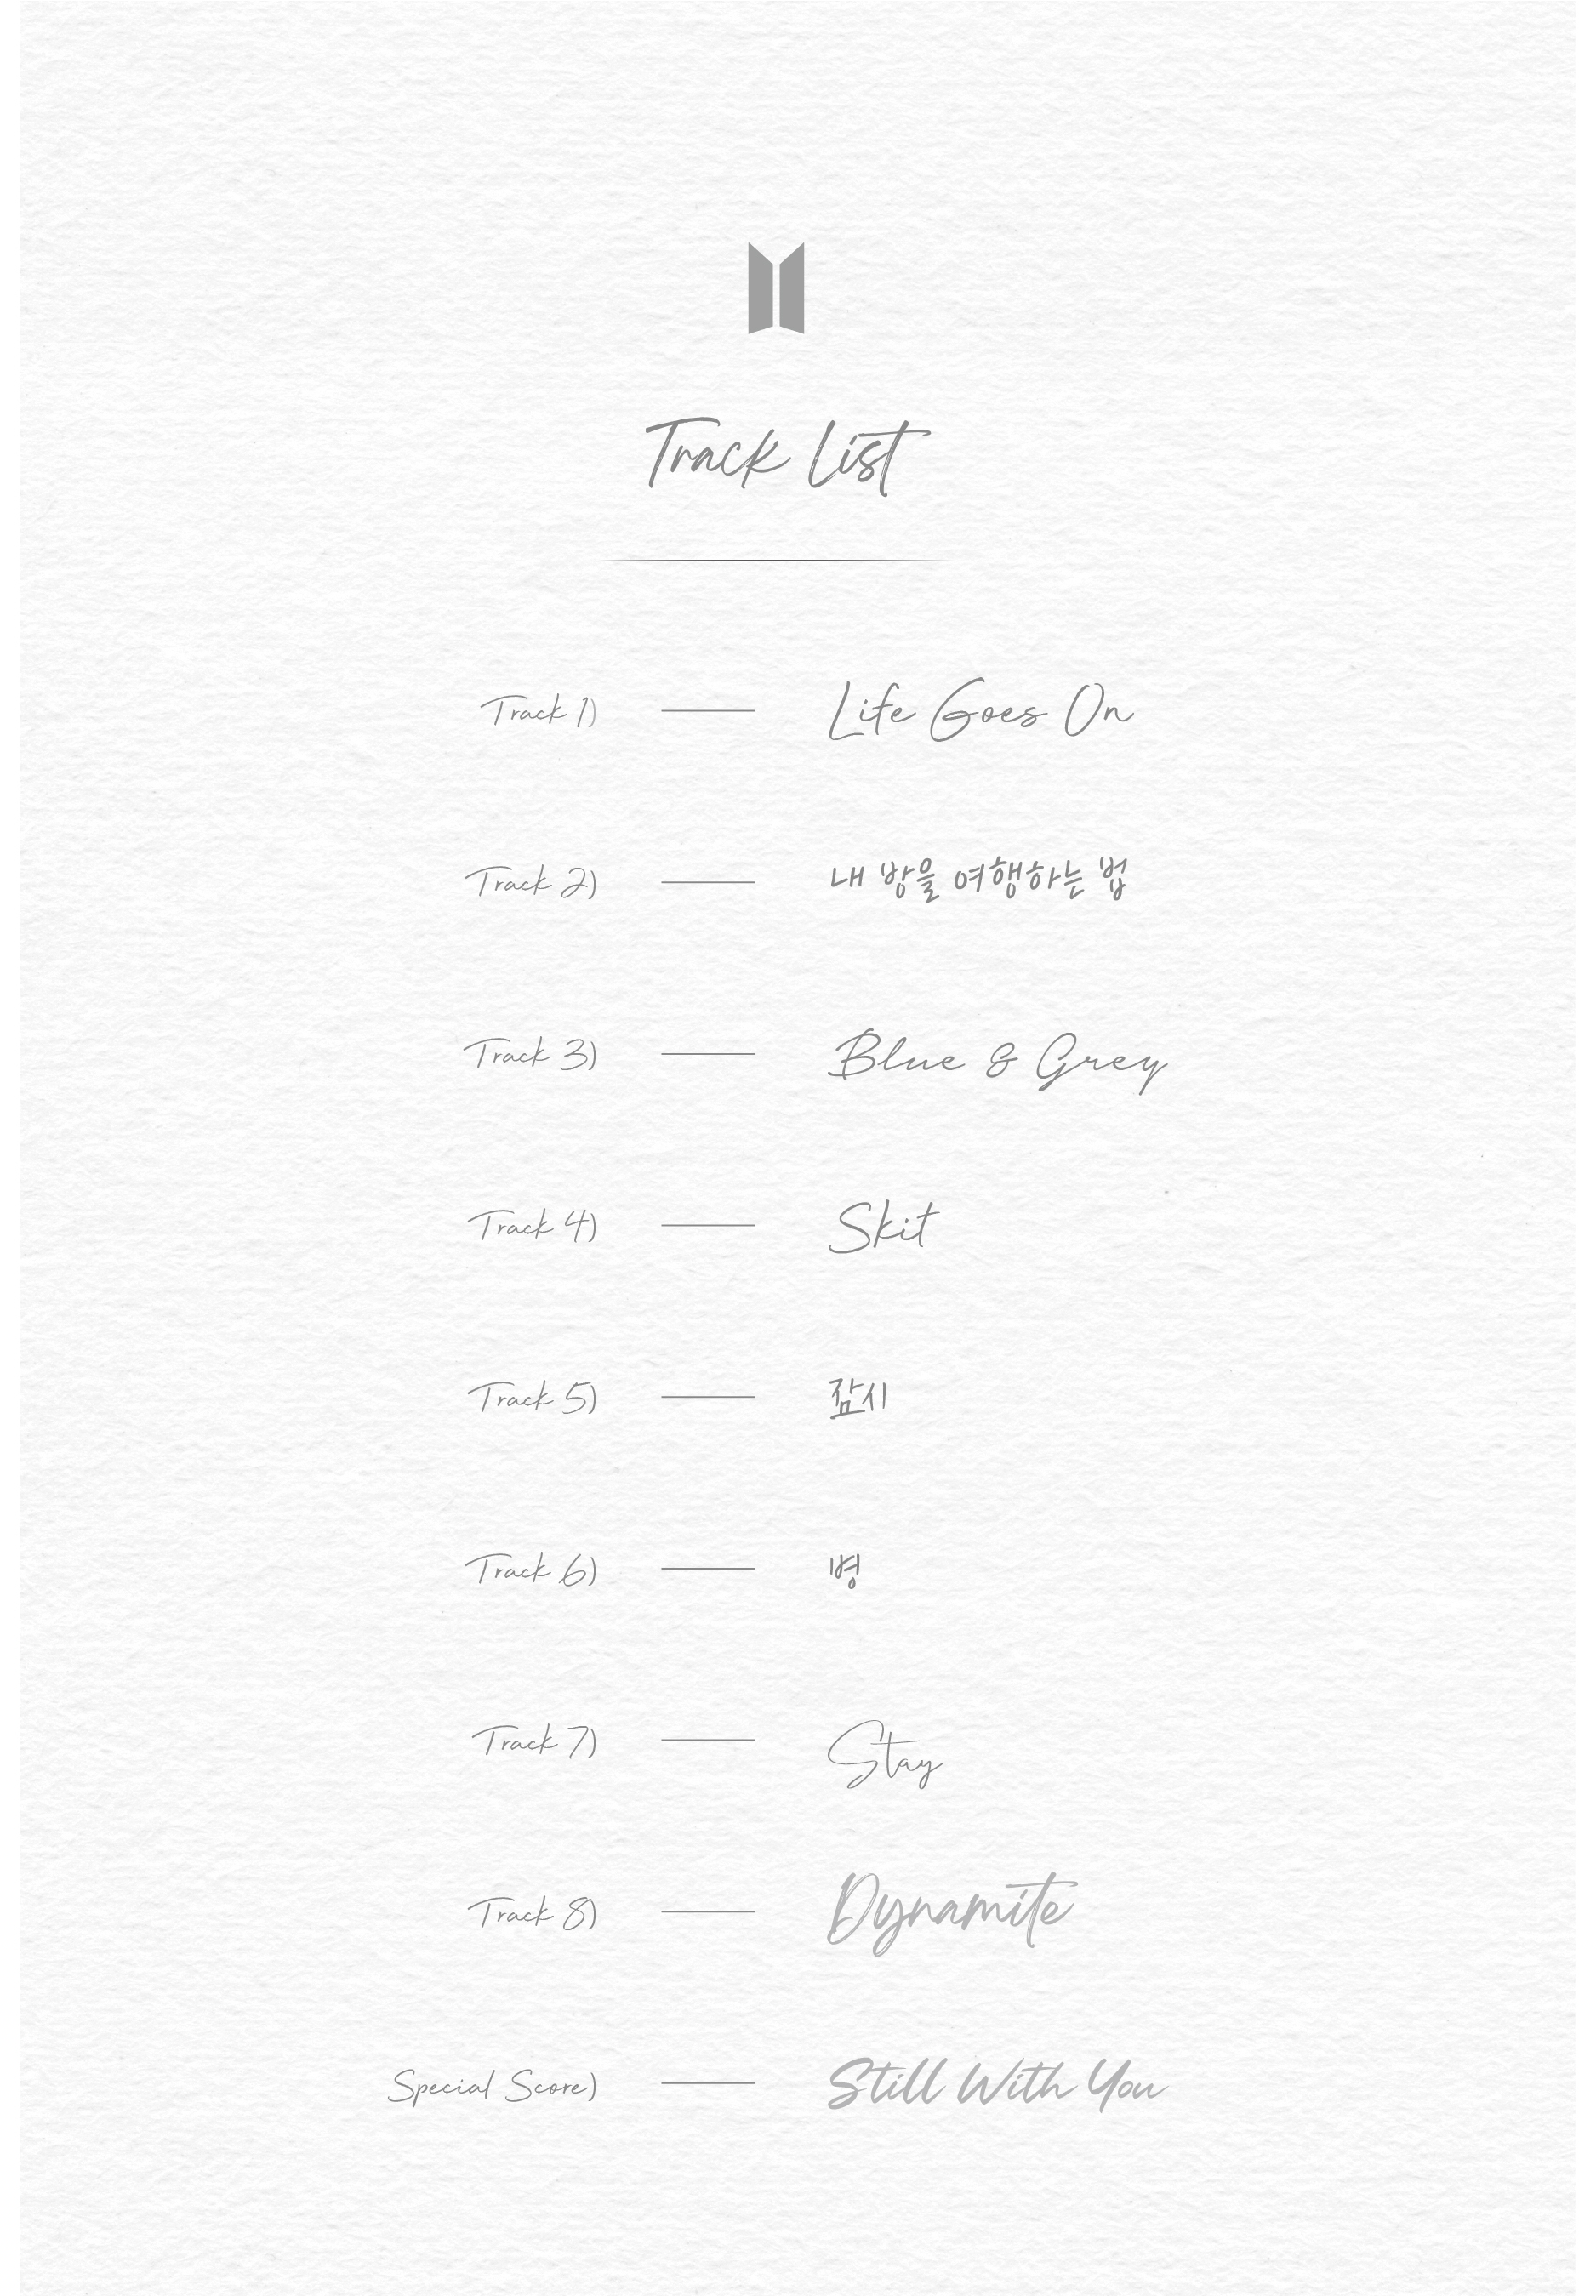 Track List
Track 1) Life Goes On
Track 2) 내 방을 여행하는 법
Track 3) Blue & Grey
Track 4) Skit
Track 5) 잠시
Track 6) 병
Track 7) Stay
Track 8) Dynamite
Special Score) Still With You